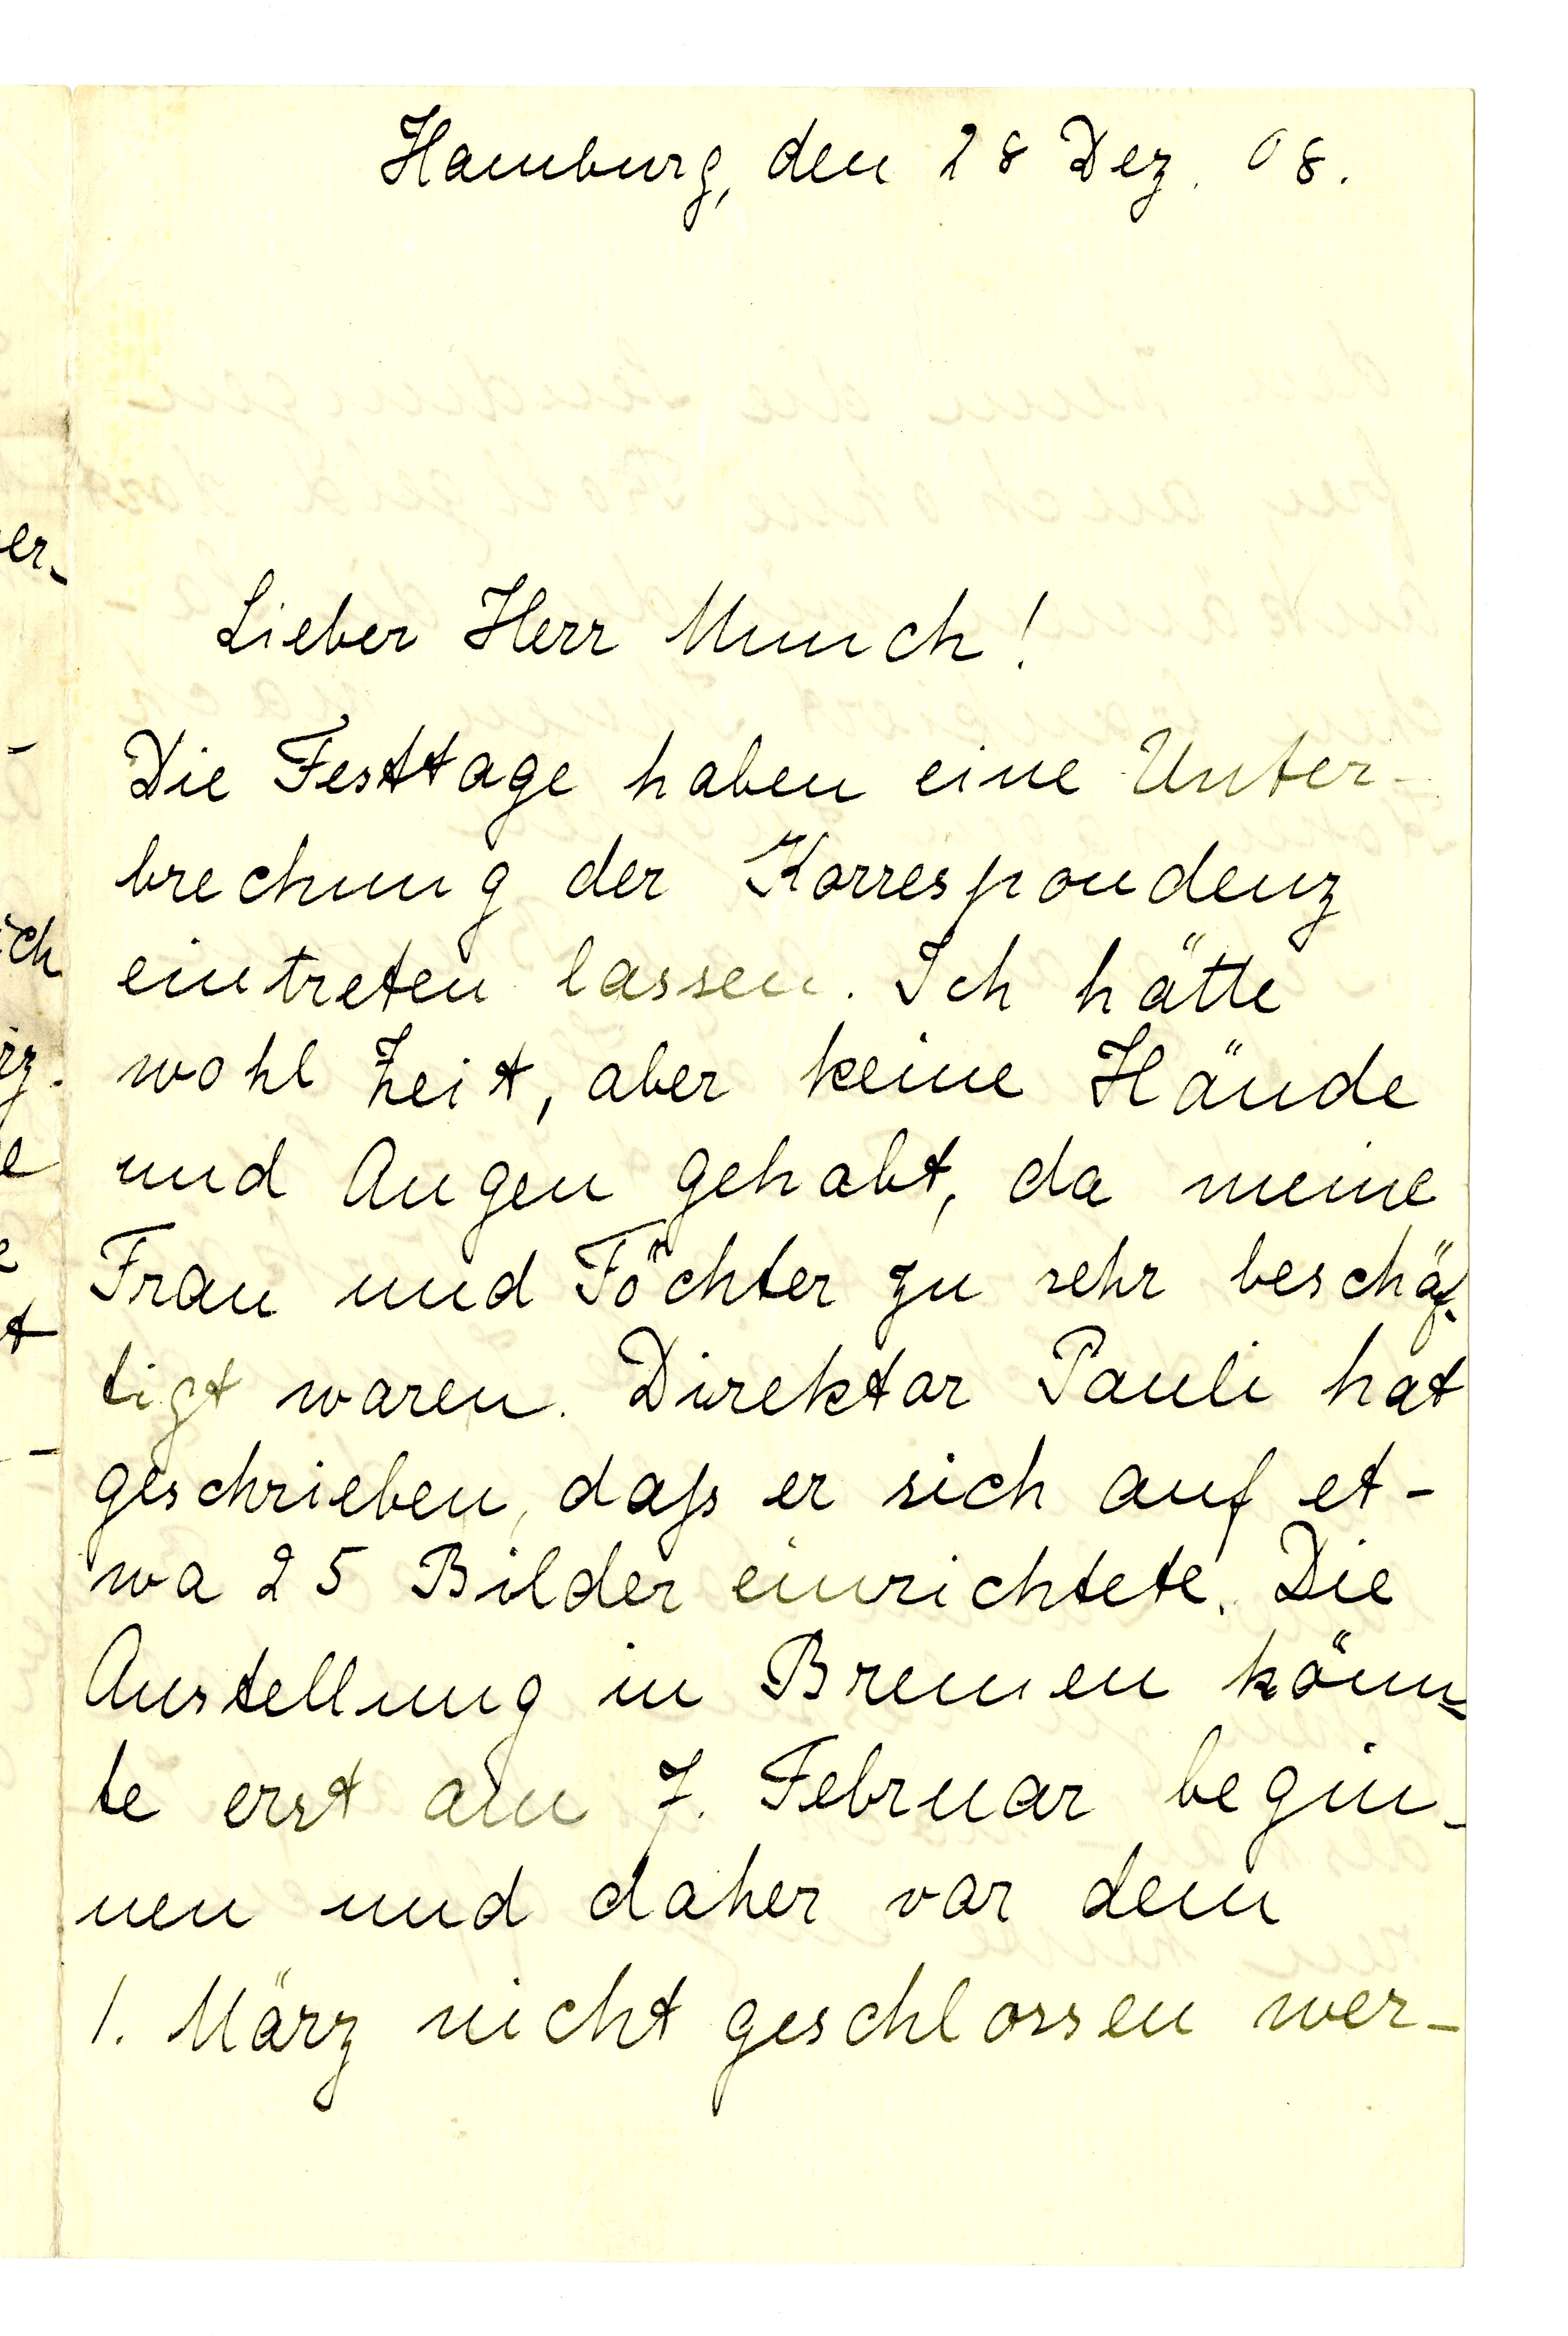 Hamburg, den 28 Dez. 08.
Lieber Herr Munch!
Die Festtage haben eine Unter-
brechung der Korrespondenz
eintreten lassen. Ich hätte
wohl Zeit, aber keine Hände
und Augen gehabt, da meine
Frau und Töchter zu sehr beschäf-
tigt waren. Direktor Pauli hat
geschrieben, daß er sich auf et-
wa 25 Bilder einrichtete. Die
Austellung in Bremen könn-
te erst am 7. Februar begin-
nen und daher vor dem
1. März nicht geschlossen wer-